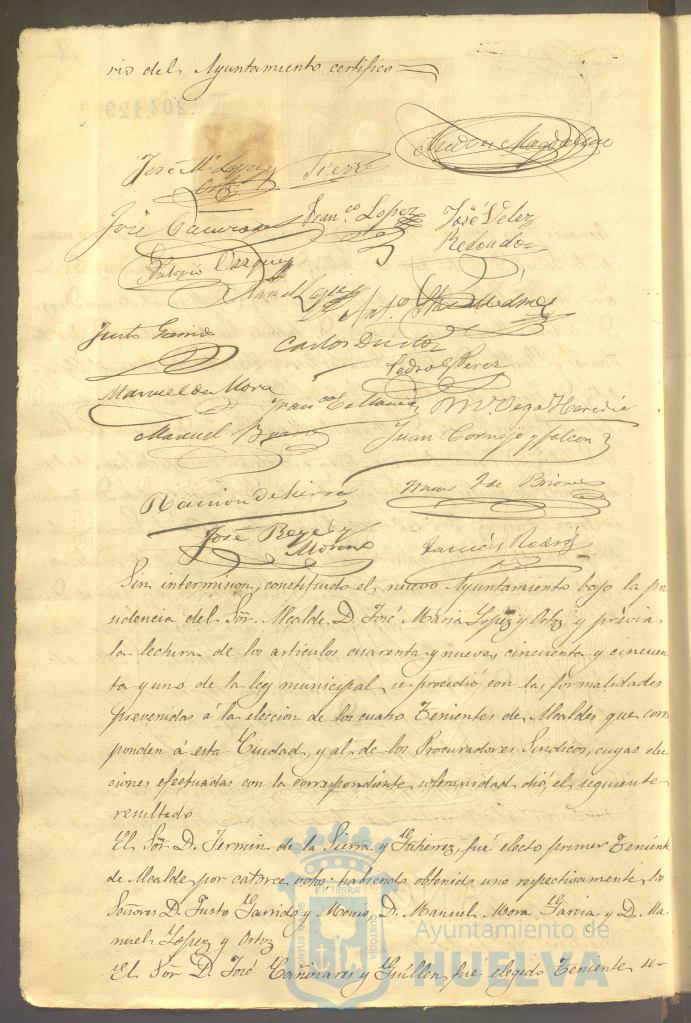 rio del Ayuntamiento certifico
José Mª Lopez y Ortiz
Sierra
José Cañizares
Franco Lopez
José Velez Redondo
Antonio Vazquez
Manuel Lopez
Anto
Justo Garrido
Carlos Doctor
Pedro G Perez
Manuel de Mora
Franco
M. Vega Heredia
Manuel
Juan Cornejo y falcon
Ramon de Sierra
de Briones
José
Moreno
Sin intermision, constituido el nuevo Ayuntamiento bajo la pre
sidencia del Sor. Alcalde D. José Maria Lopez y Ortiz y prévia
la lectura de los articulos cuarenta y nueve, cincuenta y cincuen
ta y uno de la ley municipal se procedió con las formalidades
prevenidas á la eleccion de los cuatro Tenientes de Alcaldes que corres
ponden á esta Ciudad, y al de los Procuradores Sindicos, cuyas elec
ciones efectuadas con la correspondiente solemnidad dió el siguiente
resultado
El Sor. D. Fermin de la Sierra y Gutierrez, fué electo primer Teniente
de Alcalde por catorce votos habiendo obtenido uno respectivamente los
Señores D. Justo Garrido y Mouro, D. Manuel Mora Garcia y D. Ma
nuel Lopez y Ortiz
El Sor D. José Cañizares y Guillen fué elegido Teniente se-
Ayuntamiento de
HUELVA